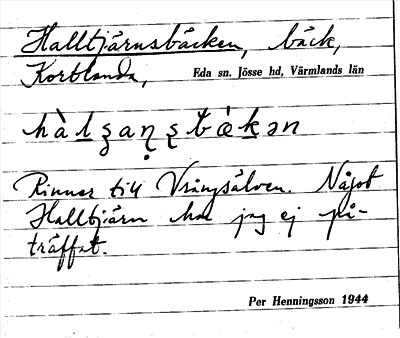 Halltjärnsbäcken, bäck,
Korblonda, Eda sn. Jösse hd, Värmlands län
Rinner till Vrångsälven. Något
Halltjärn har jag ej på-
träffat.
Per Henningsson 1944